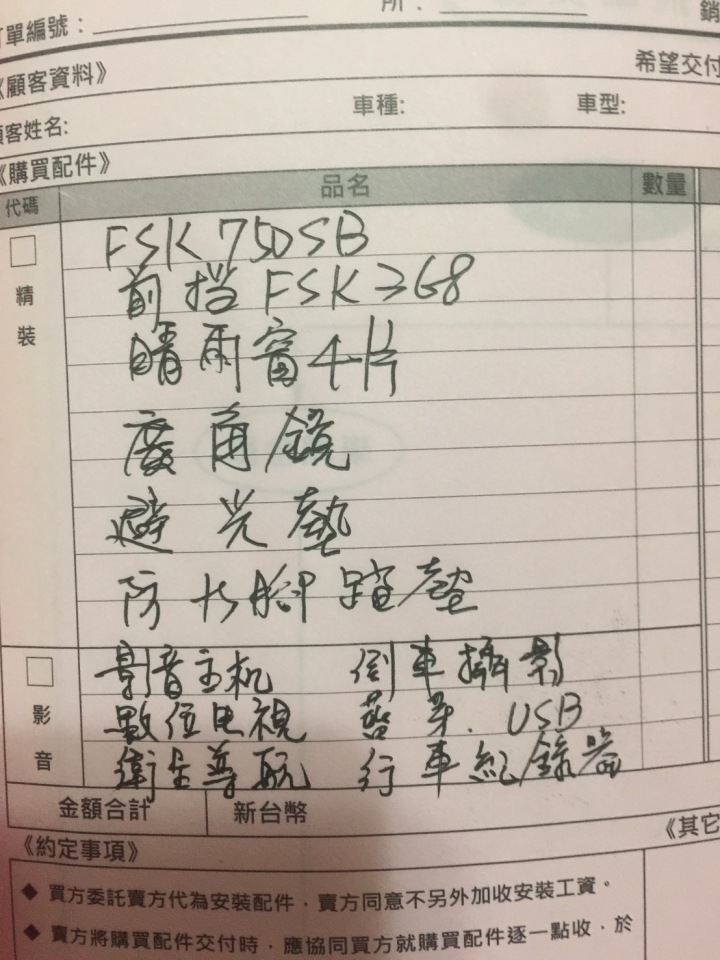 訂單編號：
所：
銷
《顧客資料》
希望交付
顧客姓名:
車種:
車型:
《購買配件》
代碼
品名
數量
精裝
FSK 750SB
前挡 FSK 368
晴雨窗4片
廣角鏡
避光墊
防水腳踏墊
影音
影音主机 倒車攝影
數位电視 藍芽. USB
衛生導航 行車紀錄器
金額合計
新台幣
《約定事項》
《其它
◆ 買方委託賣方代為安裝配件，賣方同意不另外加收安裝工資。
◆ 賣方將購買配件交付時，應協同買方就購買配件逐一點收，於